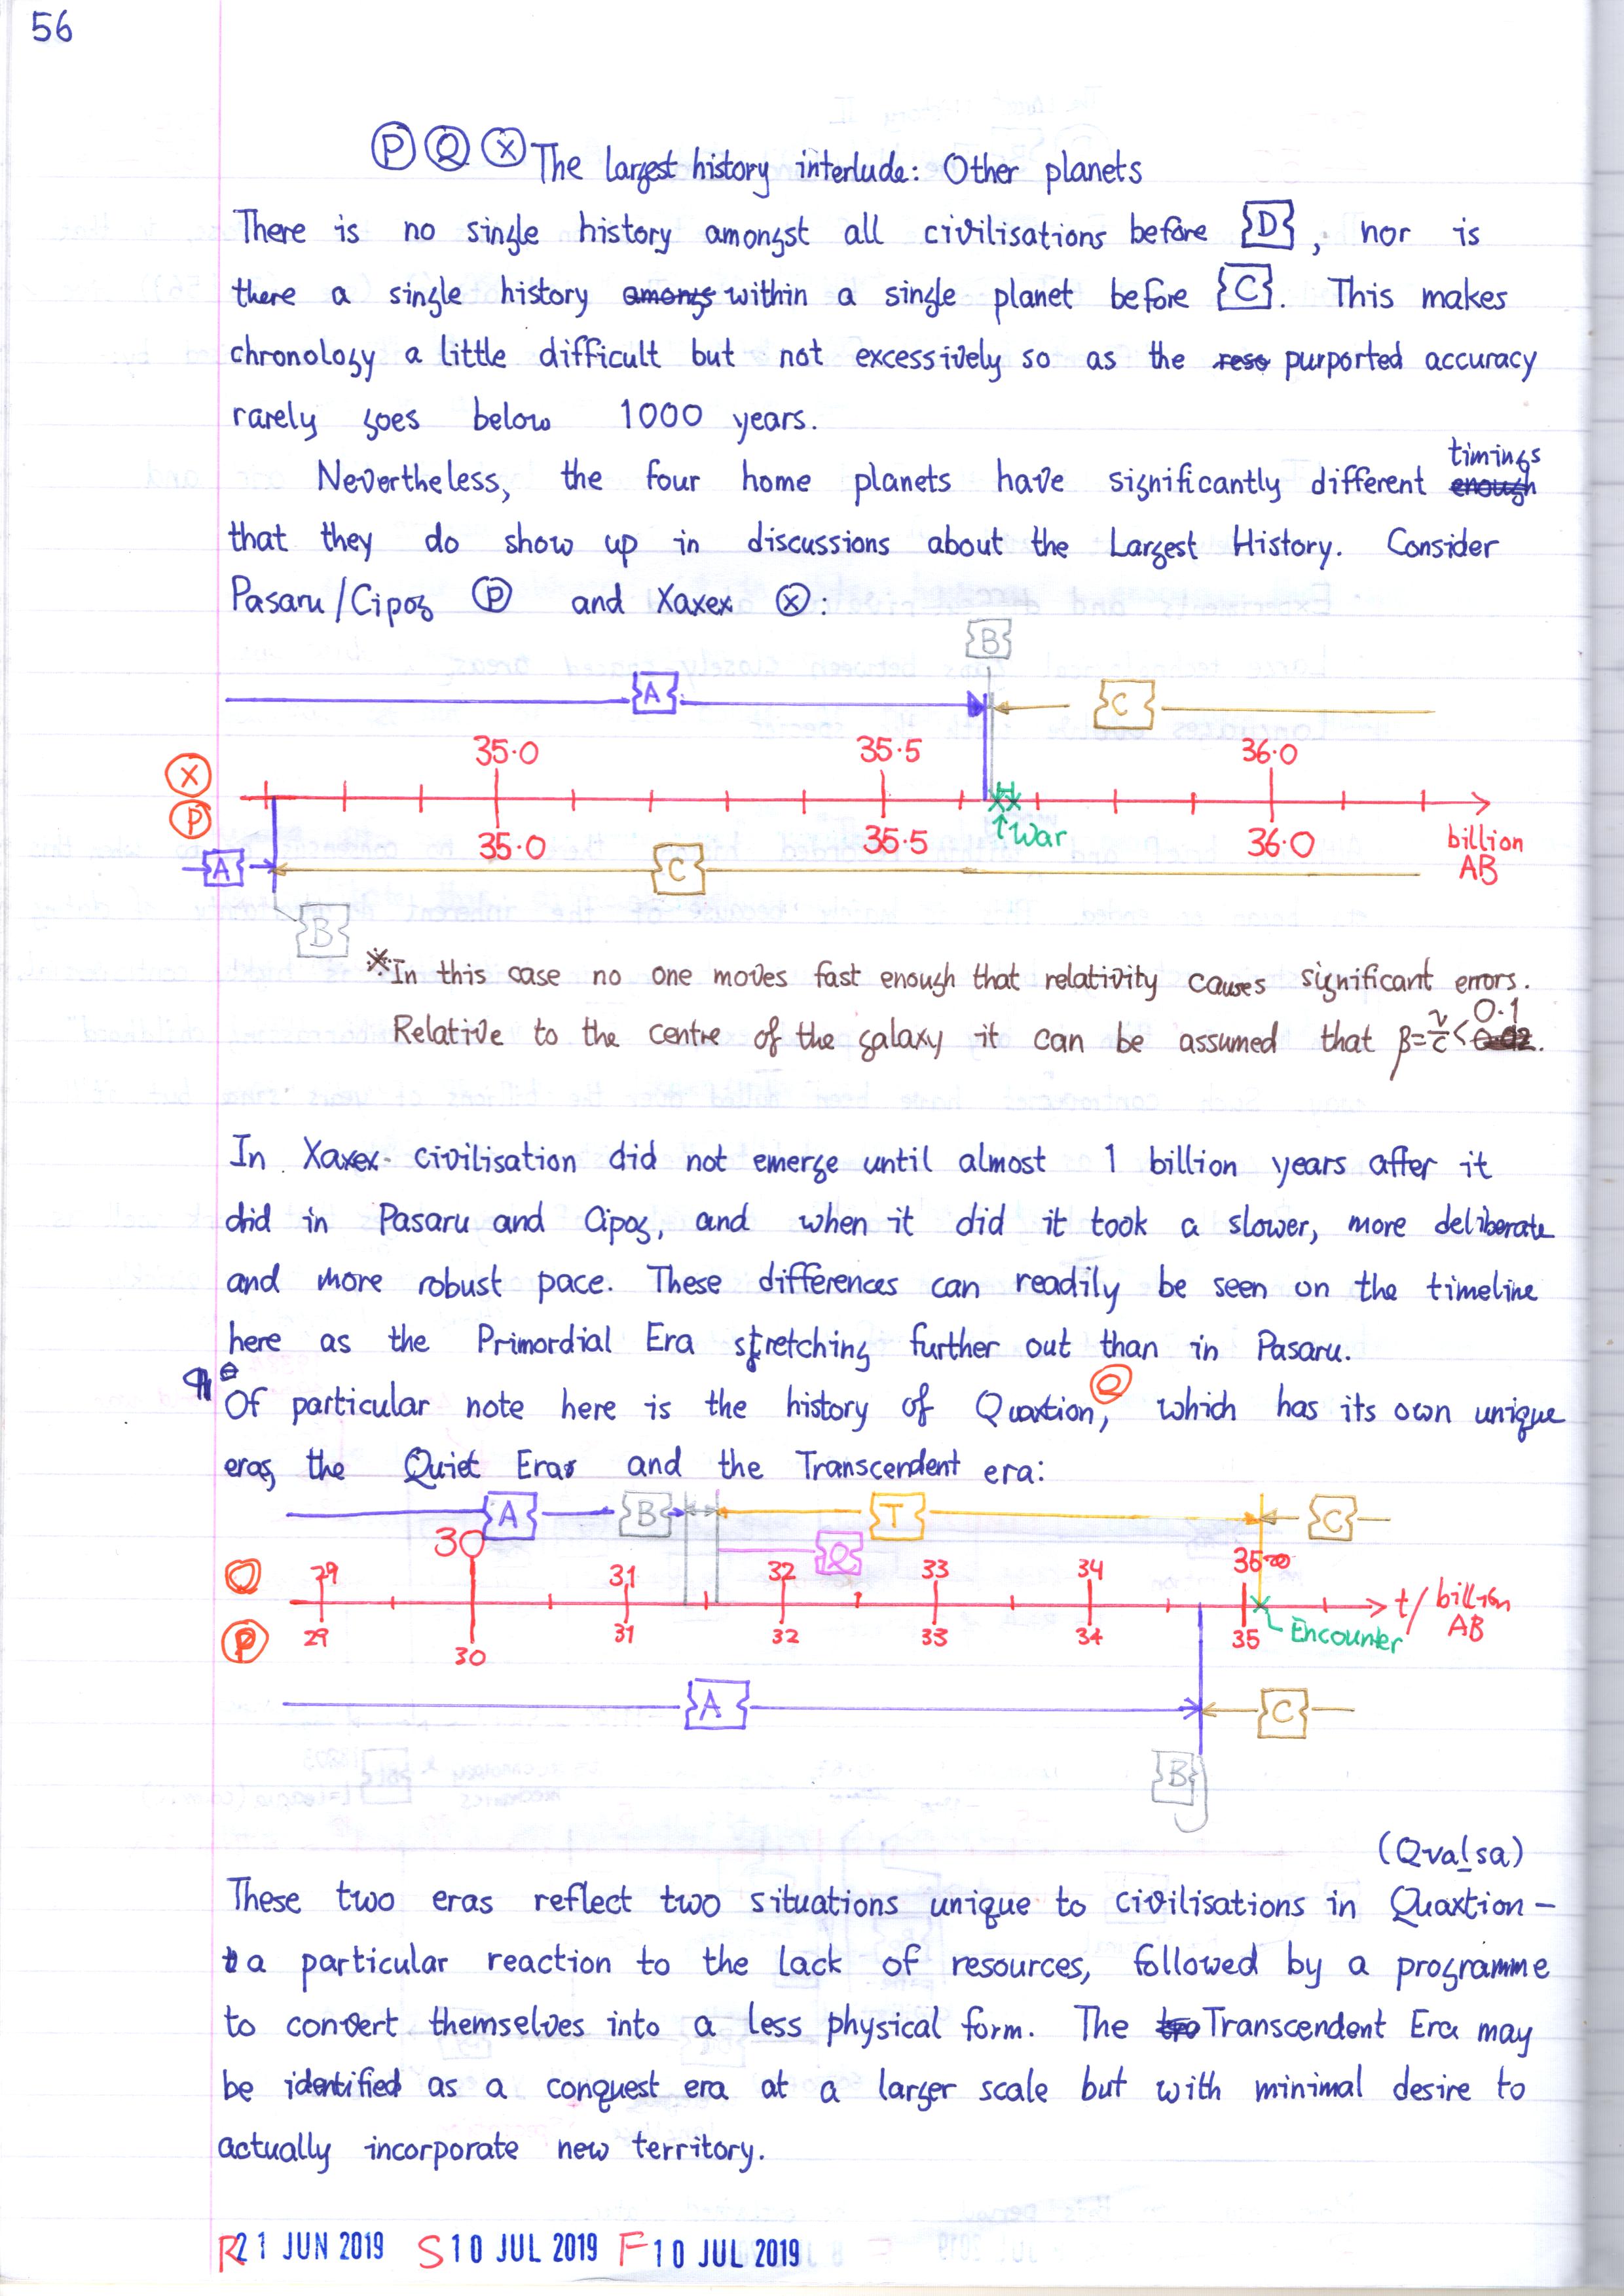 56
Ⓟ Ⓠ Ⓧ The largest history interlude: Other planets
There is no single history amongst all civilisations before {D}, nor is
there a single history amongs within a single planet before {C}. This makes
chronology a little difficult but not excessively so as the reso purported accuracy
rarely goes below 1000 years.
timings
Nevertheless, the four home planets have significantly different enough
that they do show up in discussions about the Largest History. Consider
Pasaru/Cipog Ⓟ and Xaxex Ⓧ:
B
A C
35.0 35.5 36.0
X
P
35.0 35.5 36.0 billion AB
↑War
A C
B
※In this case no one moves fast enough that relativity causes significant errors.
0.1
Relative to the centre of the galaxy it can be assumed that β=v/c<
In Xaxex civilisation did not emerge until almost 1 billion years after it
did in Pasaru and Cipog, and when it did it took a slower, more deliberate
and more robust pace. These differences can readily be seen on the timeline
here as the Primordial Era stretching further out than in Pasaru.
Of particular note here is the history of Quaxtion Ⓠ, which has its own unique
eras, the Quiet Era and the Transcendent era:
A B T C
Q
29 30 31 32 33 34 35
Q
P
29 30 31 32 33 34 35 Encounter
t/billion AB
A C
B
(Qvalsa)
These two eras reflect two situations unique to civilisations in Quaxtion –
a particular reaction to the lack of resources, followed by a programme
to convert themselves into a less physical form. The tra Transcendent Era may
be identified as a conquest era at a larger scale but with minimal desire to
actually incorporate new territory.
R21 JUN 2019 S10 JUL 2019 F10 JUL 2019